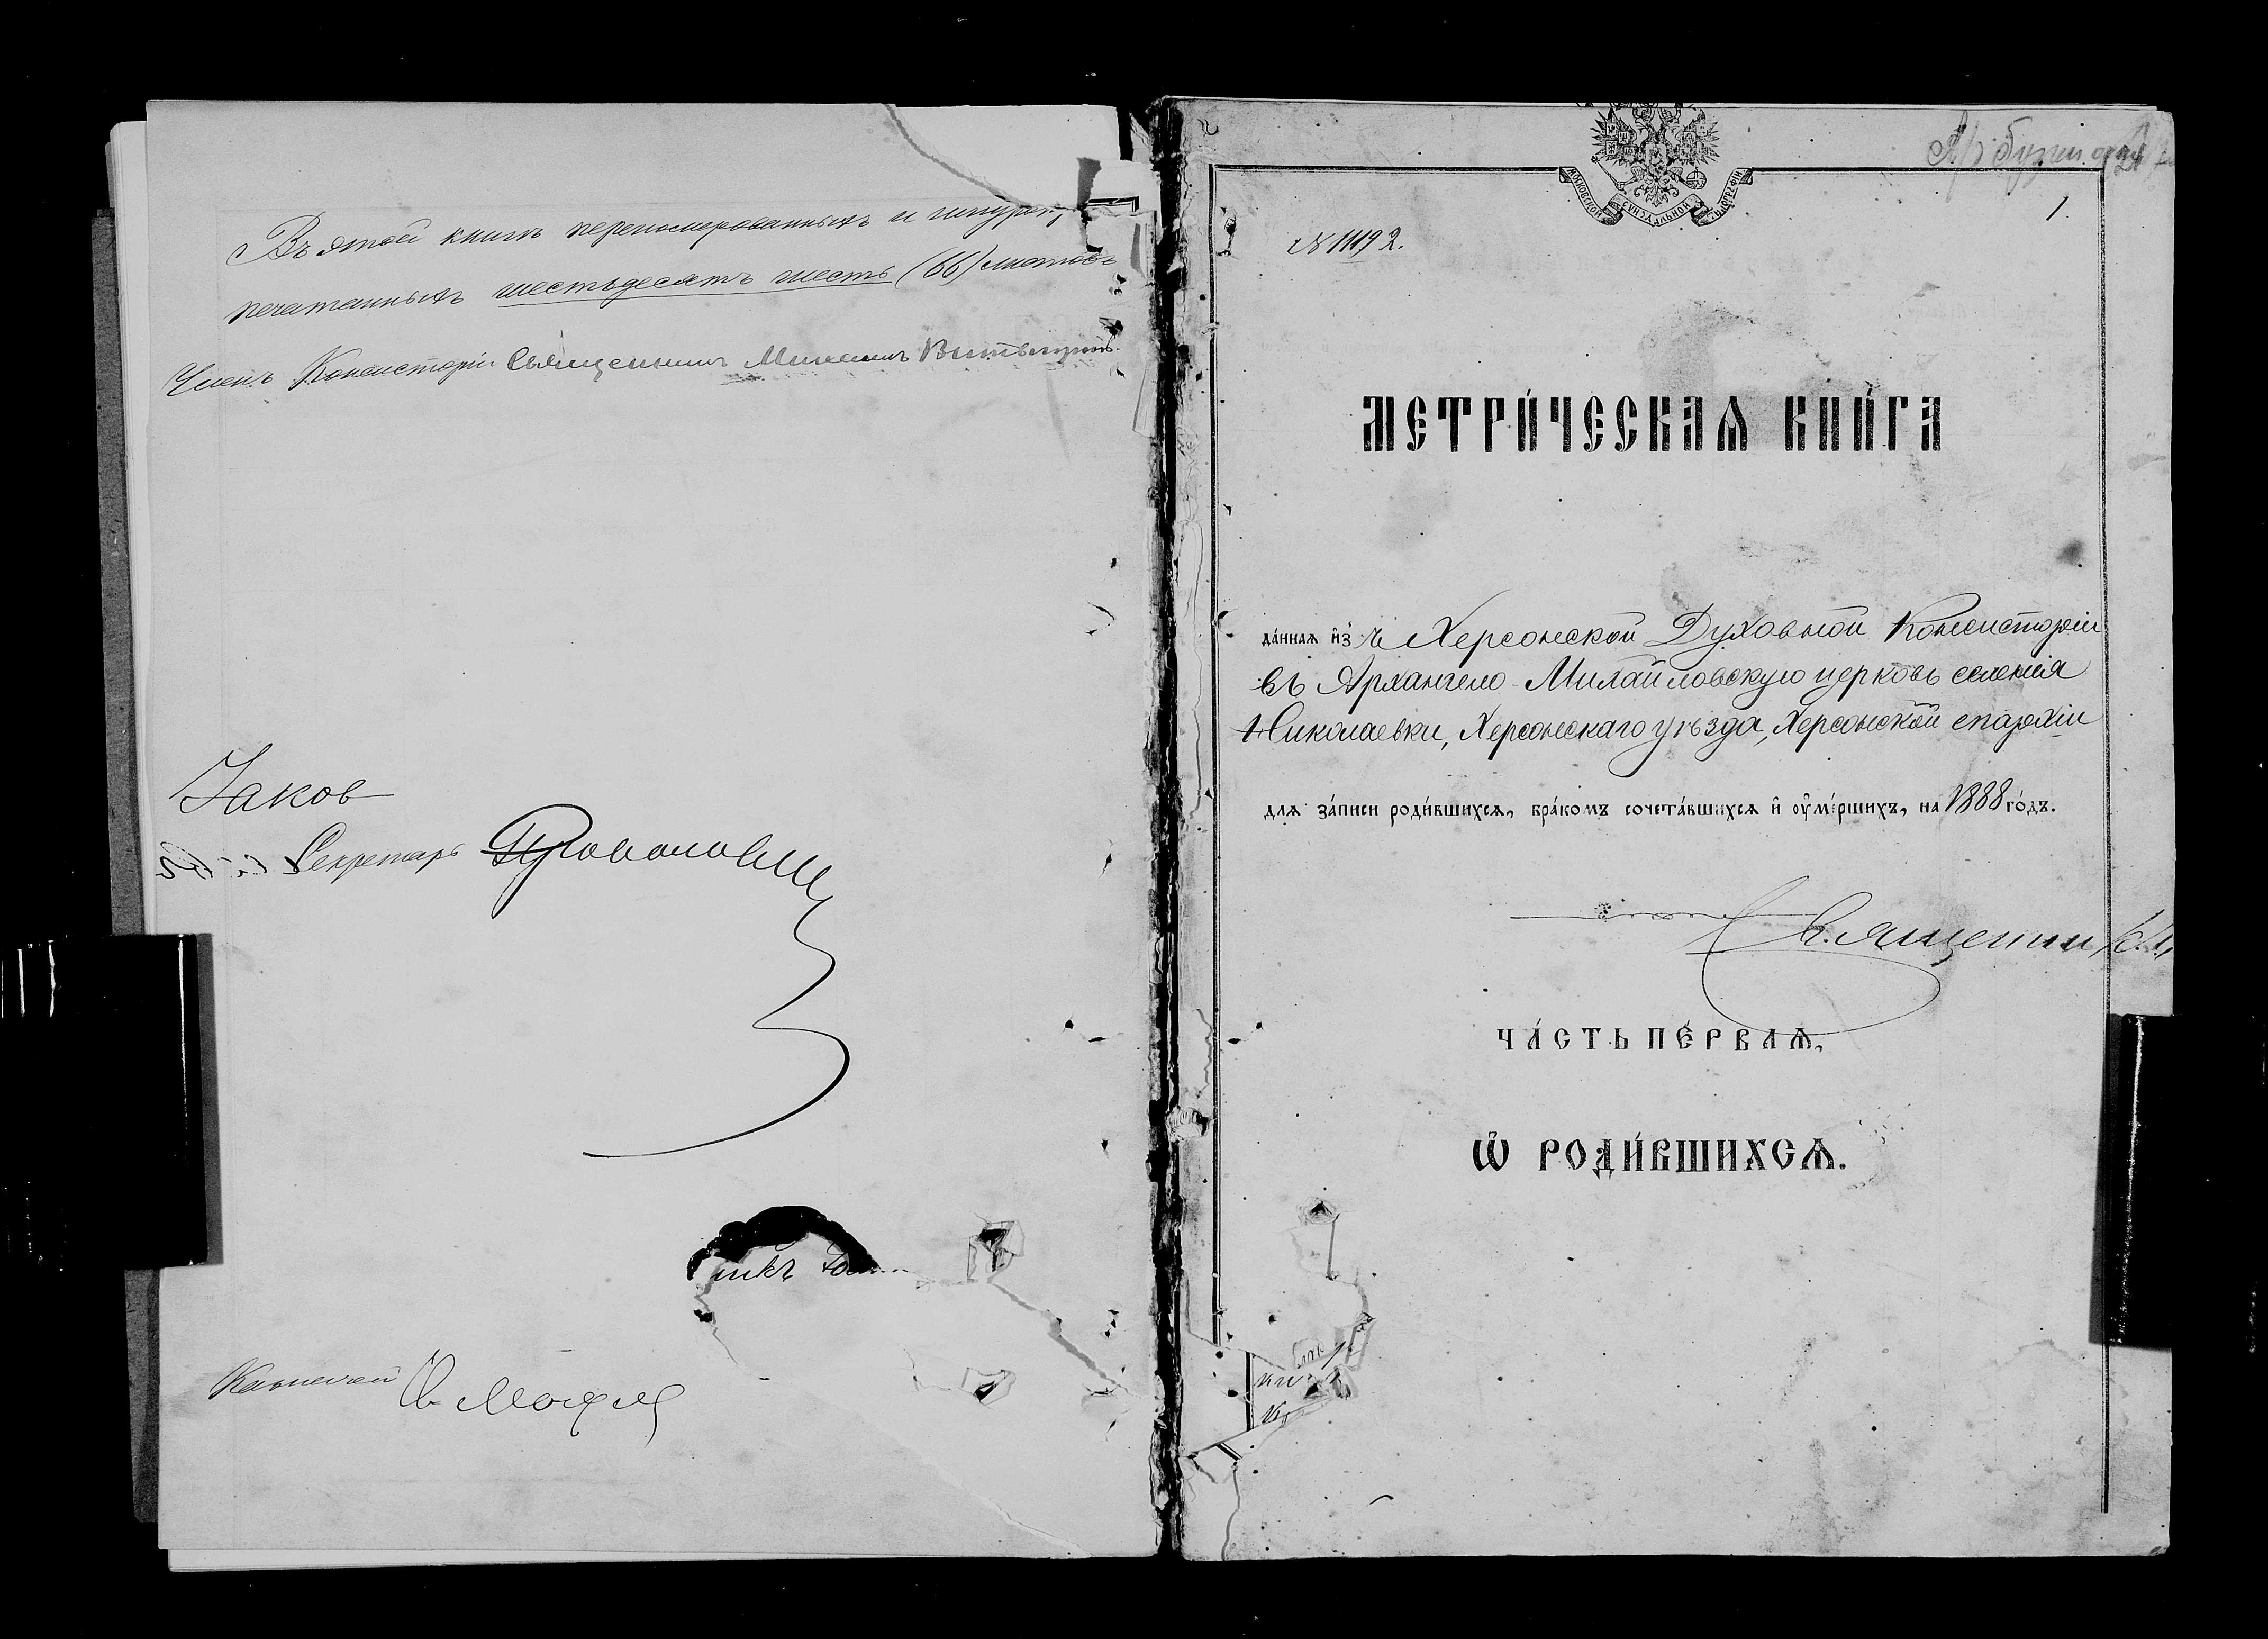 Въ этой книгѣ перенумерованныхъ и шнуро-
печатанныхъ шестьдесятъ шесть (66) листовъ
Членъ Консисторіи Священникъ Михаилъ
Іаков
Секретарь
никъ
Казначей
МОСКОВСКОЙ СИНОДАЛЬНОЙ ТИПОГРАФІИ
1.
№ 11192.
МЕТРИ́ЧЕСКАѦ КНИ́ГА
да́нная и҆з̾ ъ Херсонской Духовной Консисторіи
въ Архангело-Михайловскую церковь селенія
Николаевки, Херсонскаго уѣзда, Херсонской епархіи
для за́писи роди́вшихсѧ, бра́комъ сочета́вшихсѧ и҆ ѹ҆ме́ршихъ, на 1888 го́дъ.
Священник
ЧА́СТЬ ПЕ́РВАѦ,
Ѽ РОДИ́ВШИХСѦ.